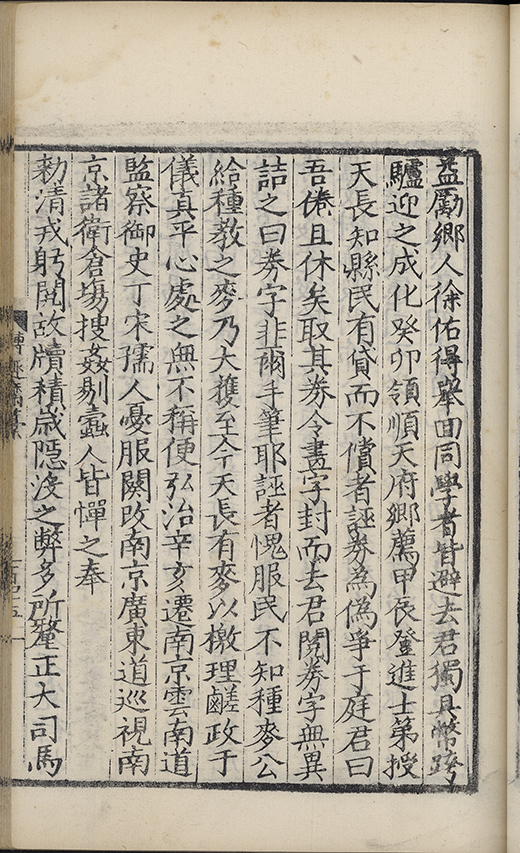 益勵鄉人徐佑得舉田同學者皆避去君獨具幣跨
驢迎之成化癸卯領順天府鄉薦甲辰登進士第授
天長知縣民有貸而不償者誣券為偽爭于庭君曰
吾倦且休矣取其券令書字封而去君閱券字無異
詰之曰券字非爾手筆耶誣者愧服民不知種麥公
給種教之麥乃大穫至今天長有麥以檄理鹺政于
儀真平心處之無不稱便弘治辛亥遷南京雲南道
監察御史丁宋孺人憂服闋改南京廣東道巡視南
京諸衛倉塲搜姦剔蠹人皆憚之奉
勑清戎躬閱故牘積歲隱沒之弊多所釐正大司馬